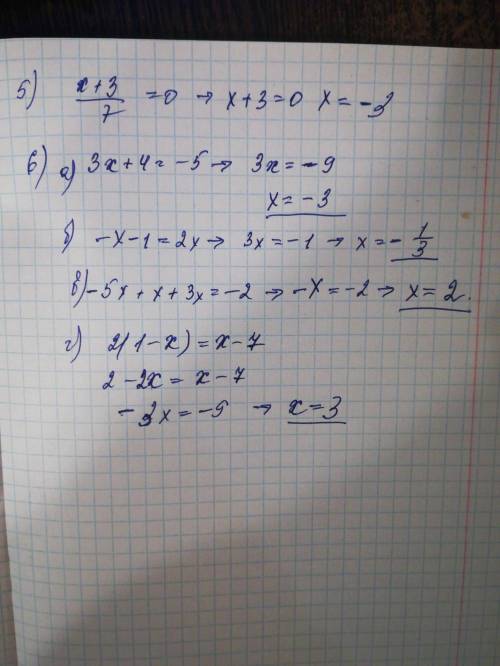 5) x+3/7 =0 → x+3=0 x=-3
6) а) 3x+4=-5 → 3x=-9
x=-3
б) -x-1=2x → 3x=-1 → x=-1/3
в) -5x+x+3x=-2 → -x=-2 → x=2.
г) 2(1-x)=x-7
2-2x=x-7
-3x=-9 → x=3